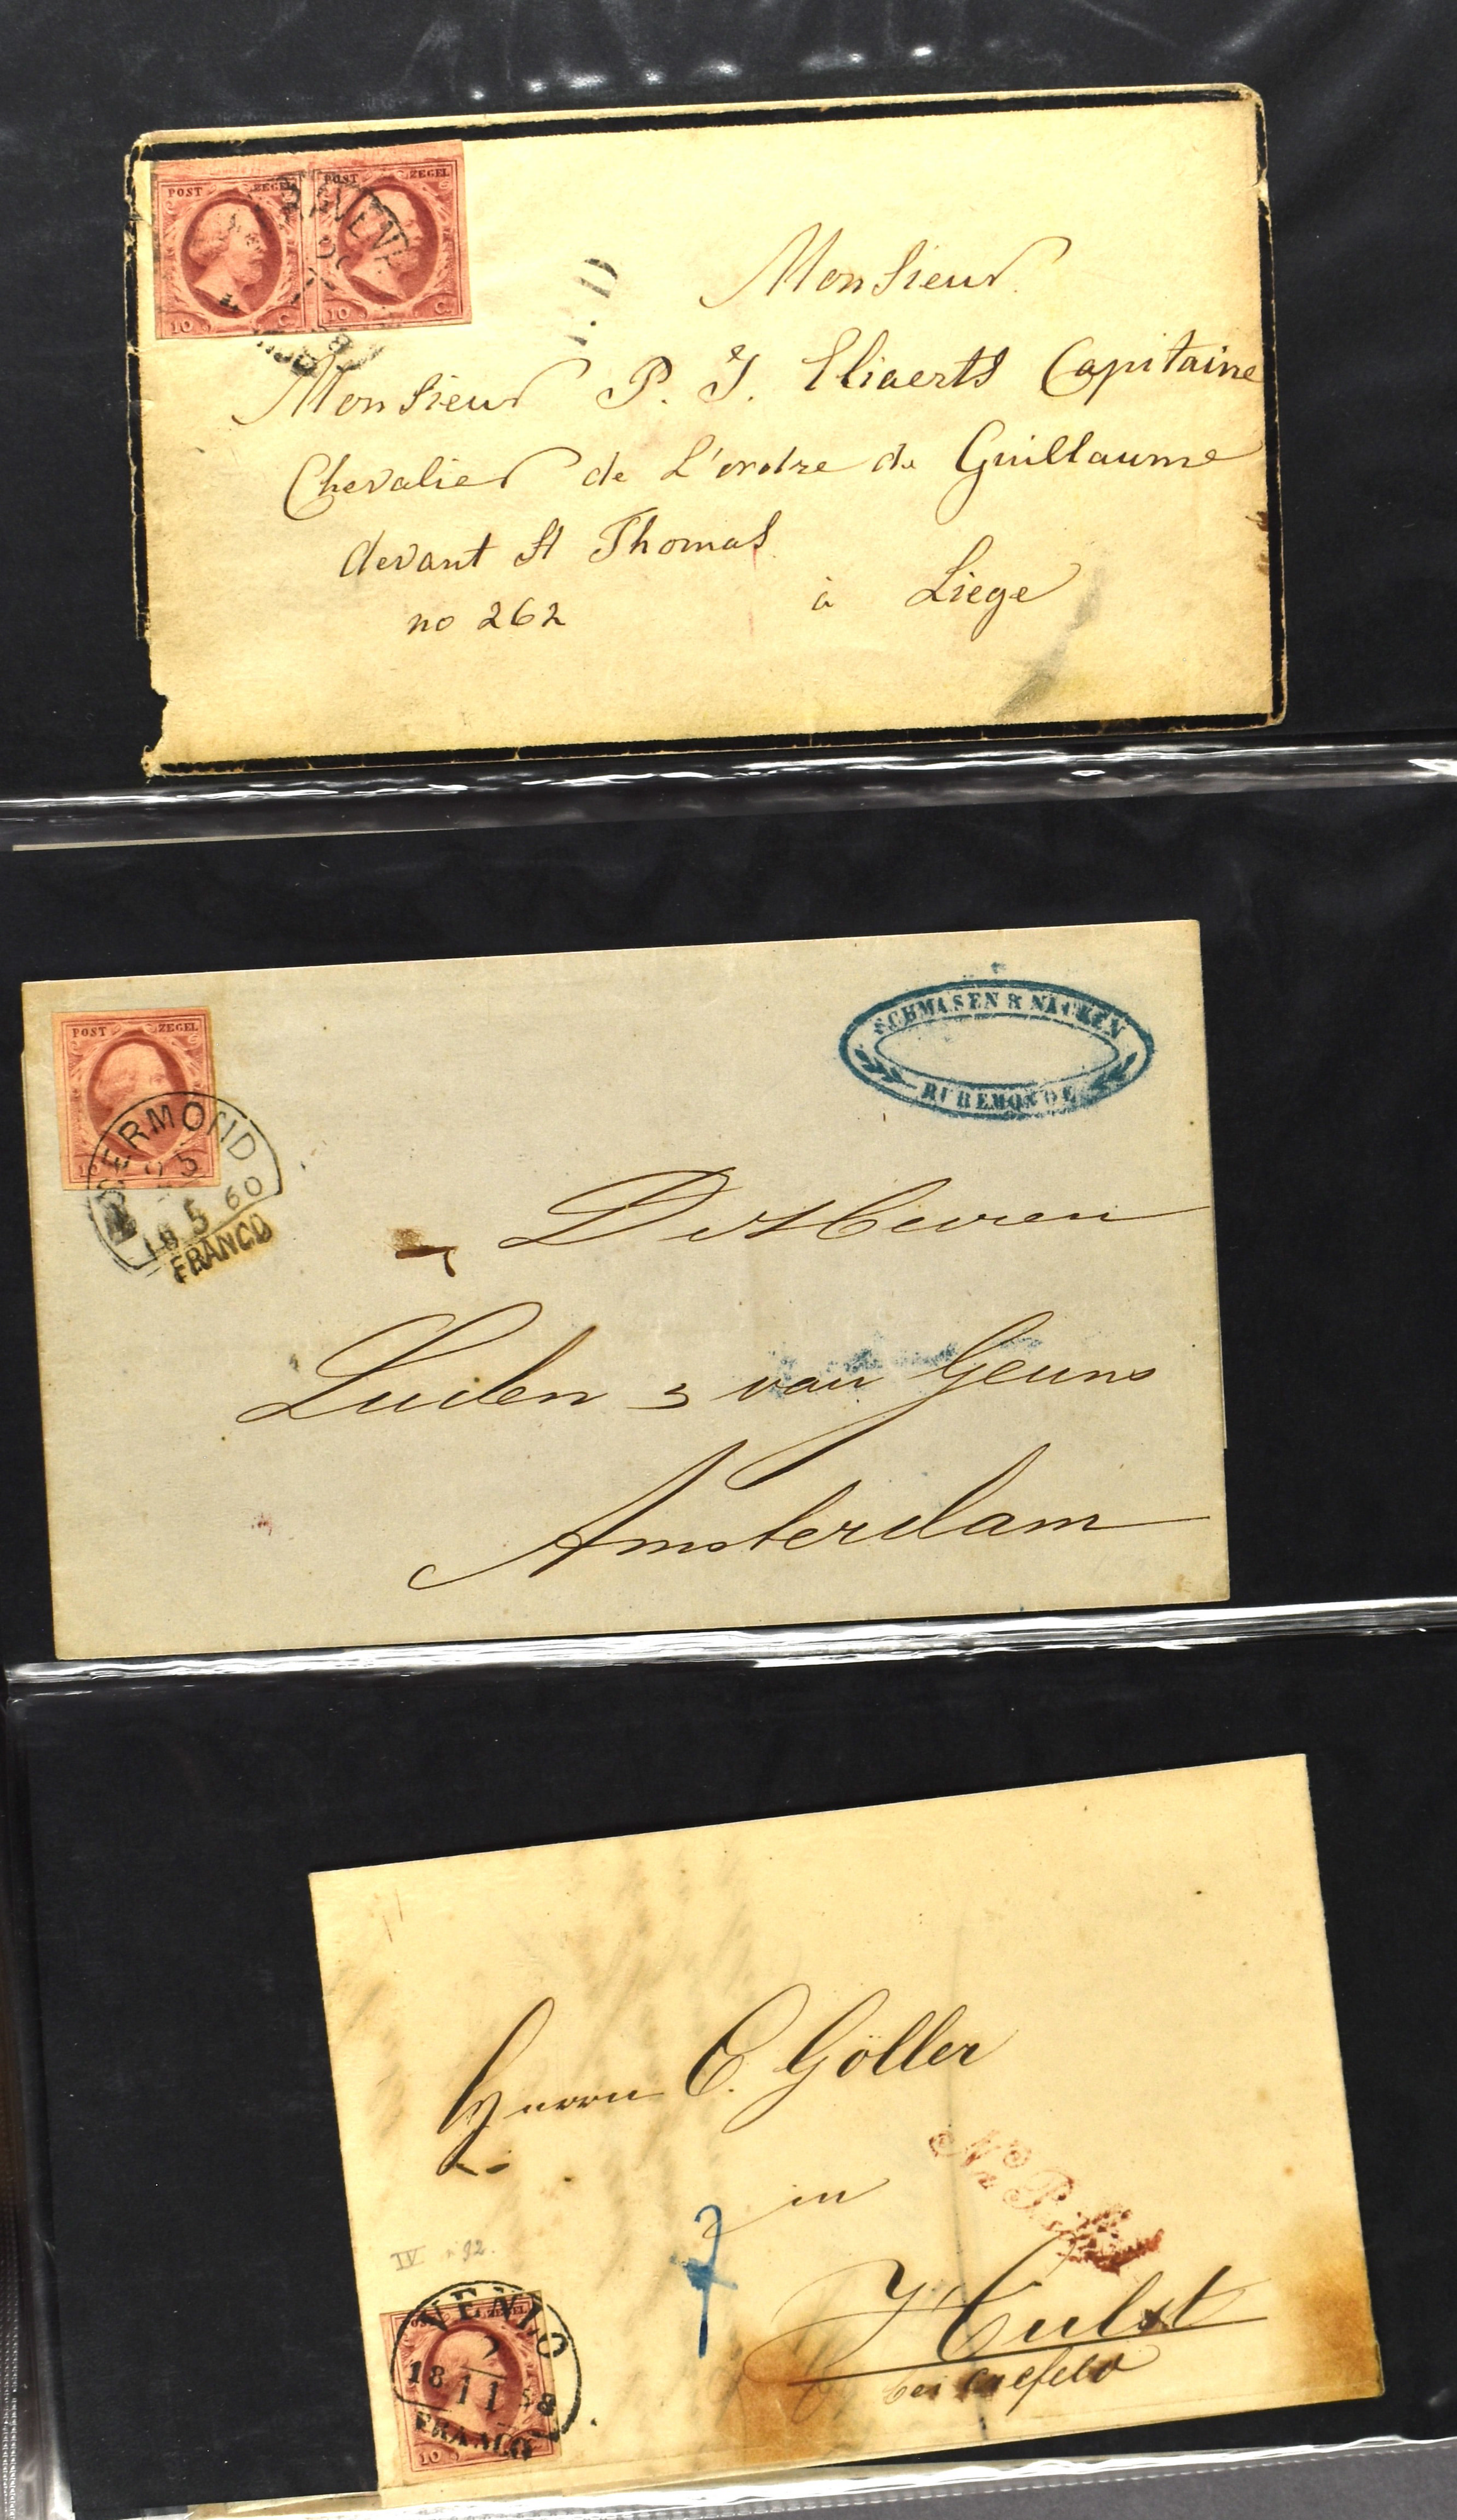 POST ZEGEL POST ZEGEL
10 C. 10 C.
Monsieur
Monsieur P. J. Eliaerts Capitaine
Chevalier de L'ordre de Guillaume
devant St Thomas
no 262 à Liege
POST ZEGEL
ROERMOND
25
18 5 60
FRANCO
SCHMASEN & NACKEN
RUREMONDE
De Heeren
Luden & van Geuns
Amsterdam
Herrn C. Göller
in
Hulst
bei Crefeld
7
IV
VENLO
2
18 11 58
FRANCO
10